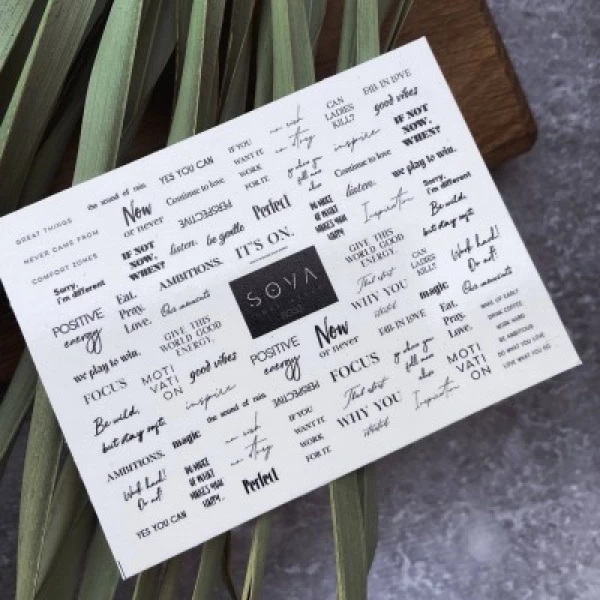 GREAT THINGS
NEVER CAME FROM
COMFORT ZONES
the sound of rain
YES YOU CAN
IF YOU
WANT IT
WORK
FOR IT
no risk
no story
CAN
LADIES
KILL?
FALL IN LOVE
good vibes
Now
or never
Continue to love
PERSPECTIVE
Perfect
inspire
IF NOT
NOW,
WHEN?
Sorry,
I'm different
IF NOT
NOW,
WHEN?
listen.
be gentle
DO MORE
OF WHAT
MAKES YOU
HAPPY..
Continue to love
listen.
we play to win.
POSITIVE
energy
Eat.
Pray.
Love.
AMBITIONS.
IT'S ON.
Inspiration
Sorry,
I'm different
Be wild,
but stay soft
Our moments
GIVE THIS
WORLD GOOD
ENERGY.
SOVA
GIVE THIS
WORLD GOOD
ENERGY.
CAN
LADIES
KILL?
Work hard!
Do art!
we play to win.
FOCUS
MOTI
VATI
ON
good vibes
POSITIVE
energy
Now
or never
WHY YOU
started
magic
Our moments
Be wild,
but stay soft
inspire
the sound of rain
PERSPECTIVE
FOCUS
FALL IN LOVE
Eat.
Pray.
Love.
WAKE UP EARLY
DRINK COFFEE
WORK HARD
BE AMBITIOUS
DO WHAT YOU LOVE
LOVE WHAT YOU DO
AMBITIONS.
magic
no risk
no story
IF YOU
WANT IT
WORK
FOR IT
WHY YOU
started
Inspiration
MOTI
VATI
ON
Work hard!
Do art!
DO MORE
OF WHAT
MAKES YOU
HAPPY..
Perfect
YES YOU CAN